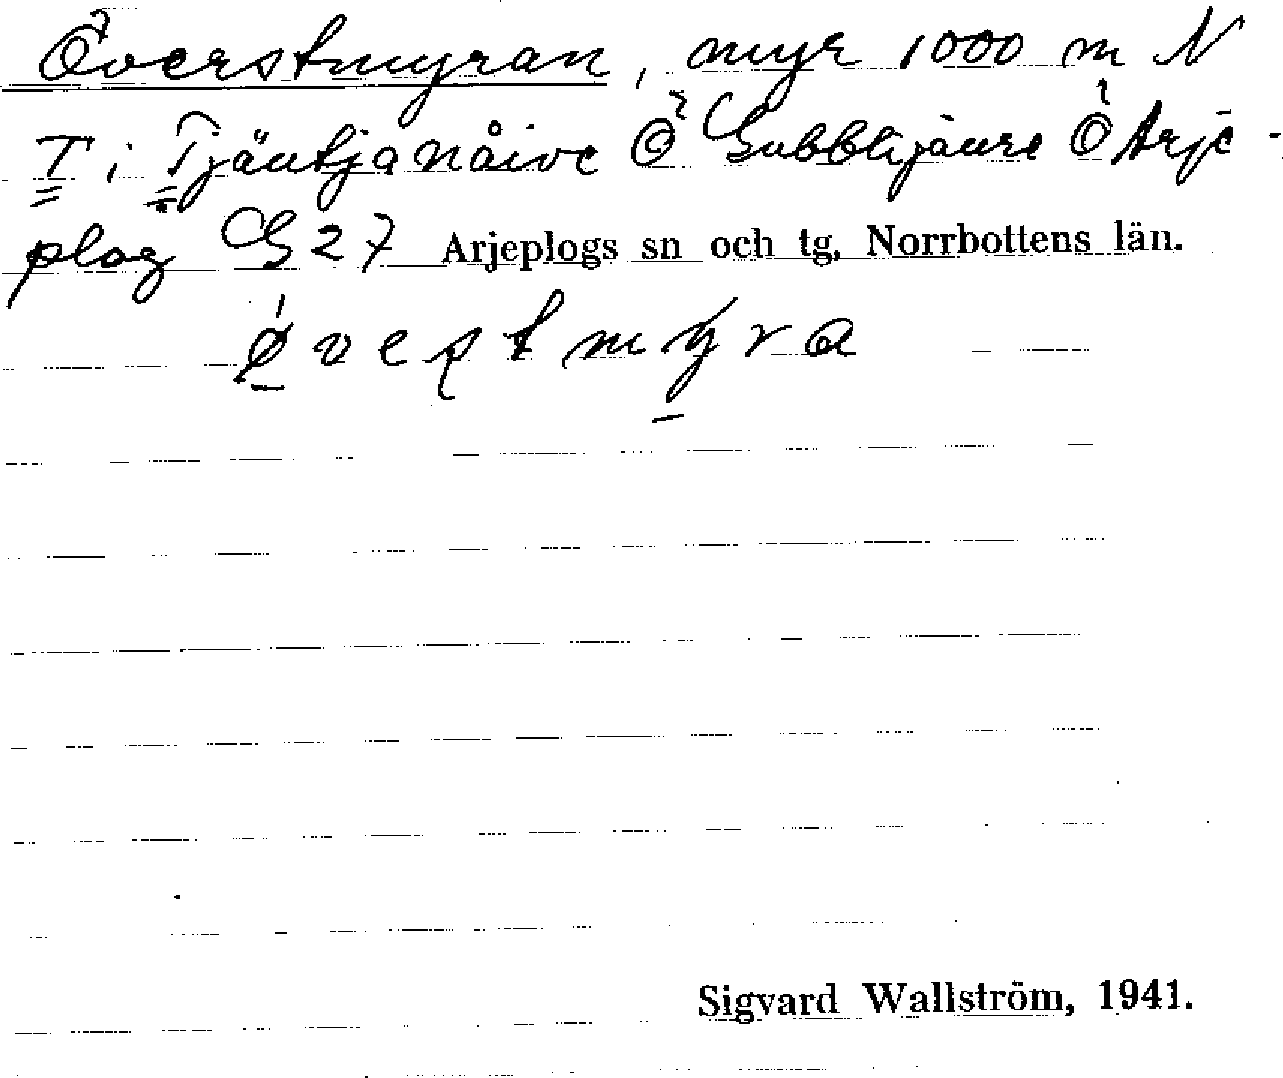 Överstmyran, myr 1000 m N
T i Tjäutjanåive Ö Gubbtjaure Ö Arje-
plog G 27 Arjeplogs sn och tg, Norrbottens län.
øvestmyra
Sigvard Wallström, 1941.